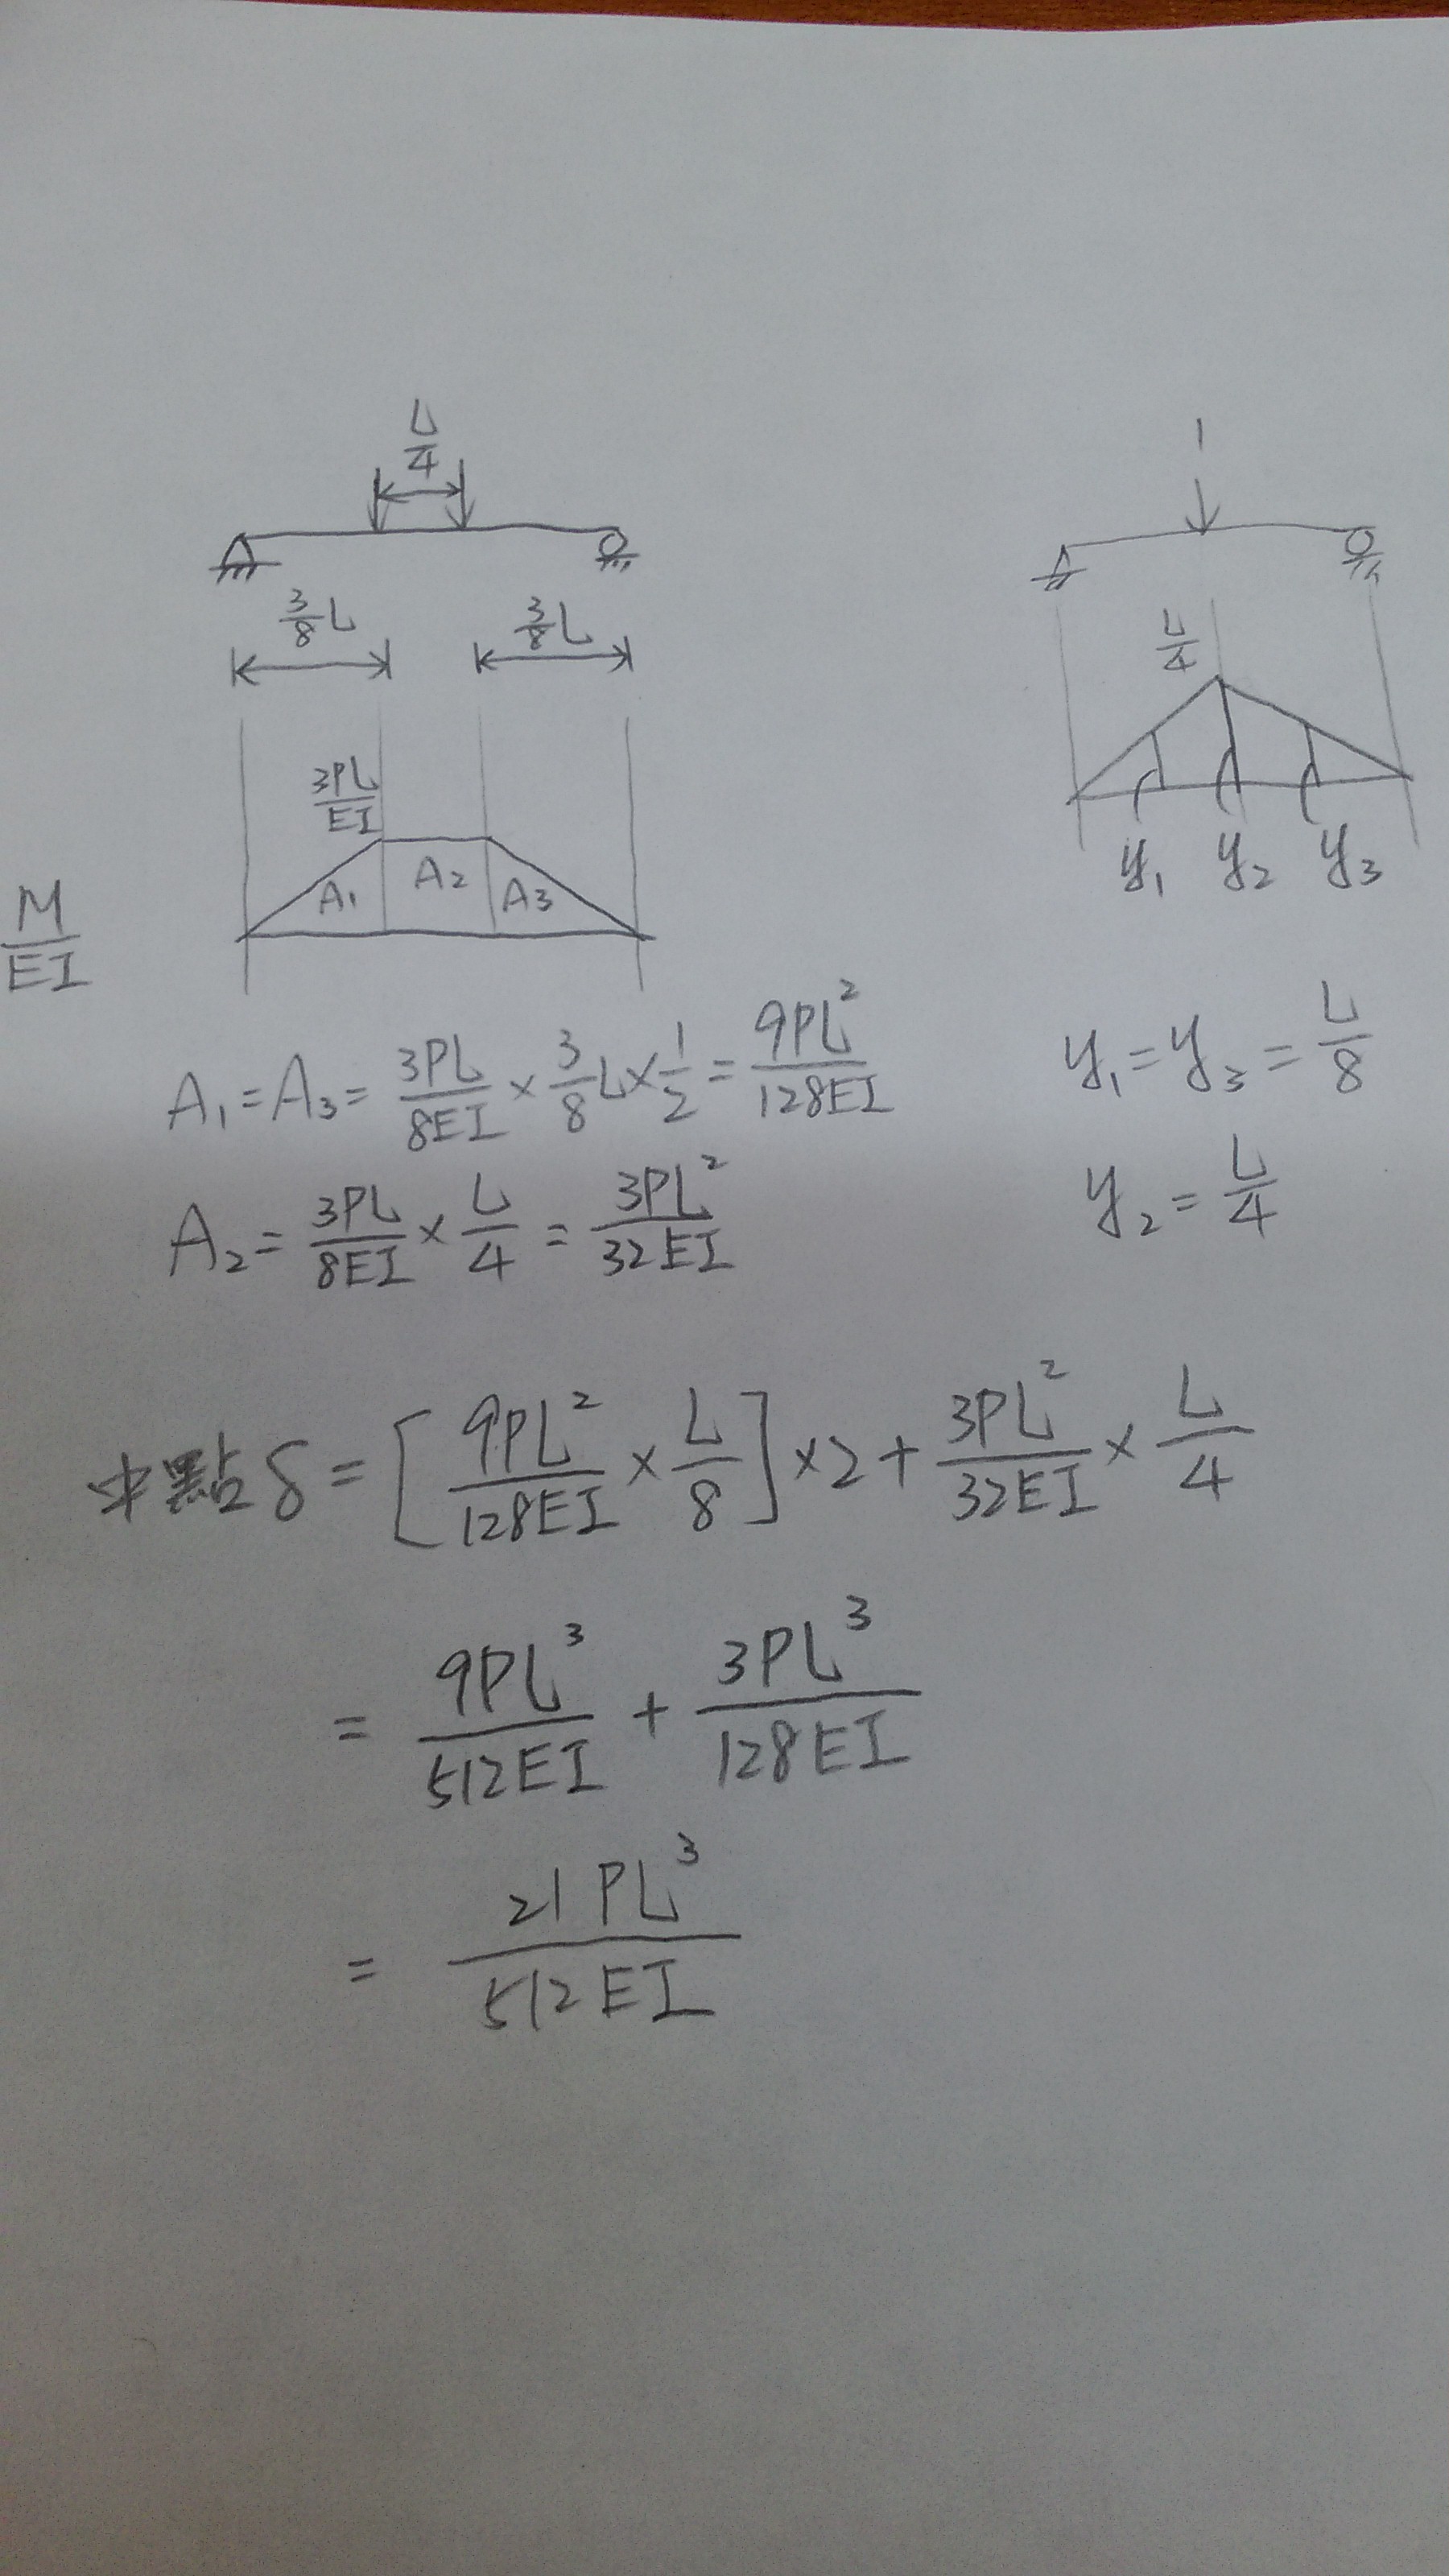 L/4
1
3/8 L
3/8 L
L/4
3PL/EI
M/EI
A₁ A₂ A₃
y₁ y₂ y₃
A₁ = A₃ = 3PL/8EI × 3/8 L × 1/2 = 9PL²/128EI
y₁ = y₃ = L/8
A₂ = 3PL/8EI × L/4 = 3PL²/32EI
y₂ = L/4
中點 δ = [9PL²/128EI × L/8] × 2 + 3PL²/32EI × L/4
= 9PL³/512EI + 3PL³/128EI
= 21PL³/512EI